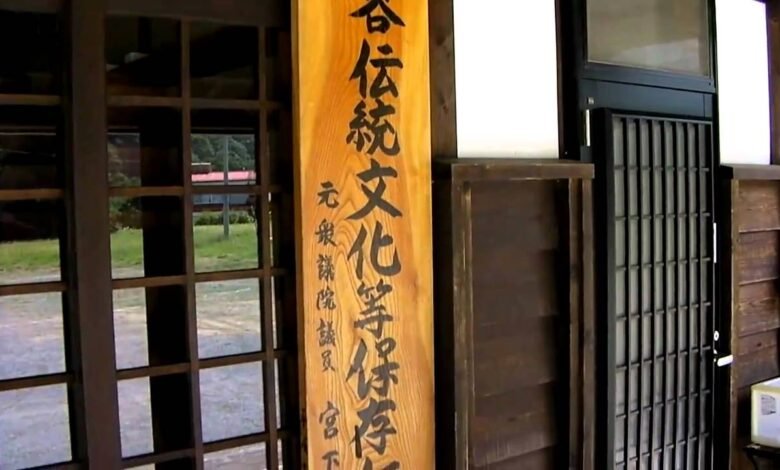 伝統文化等保存
元衆議院議員 宮下